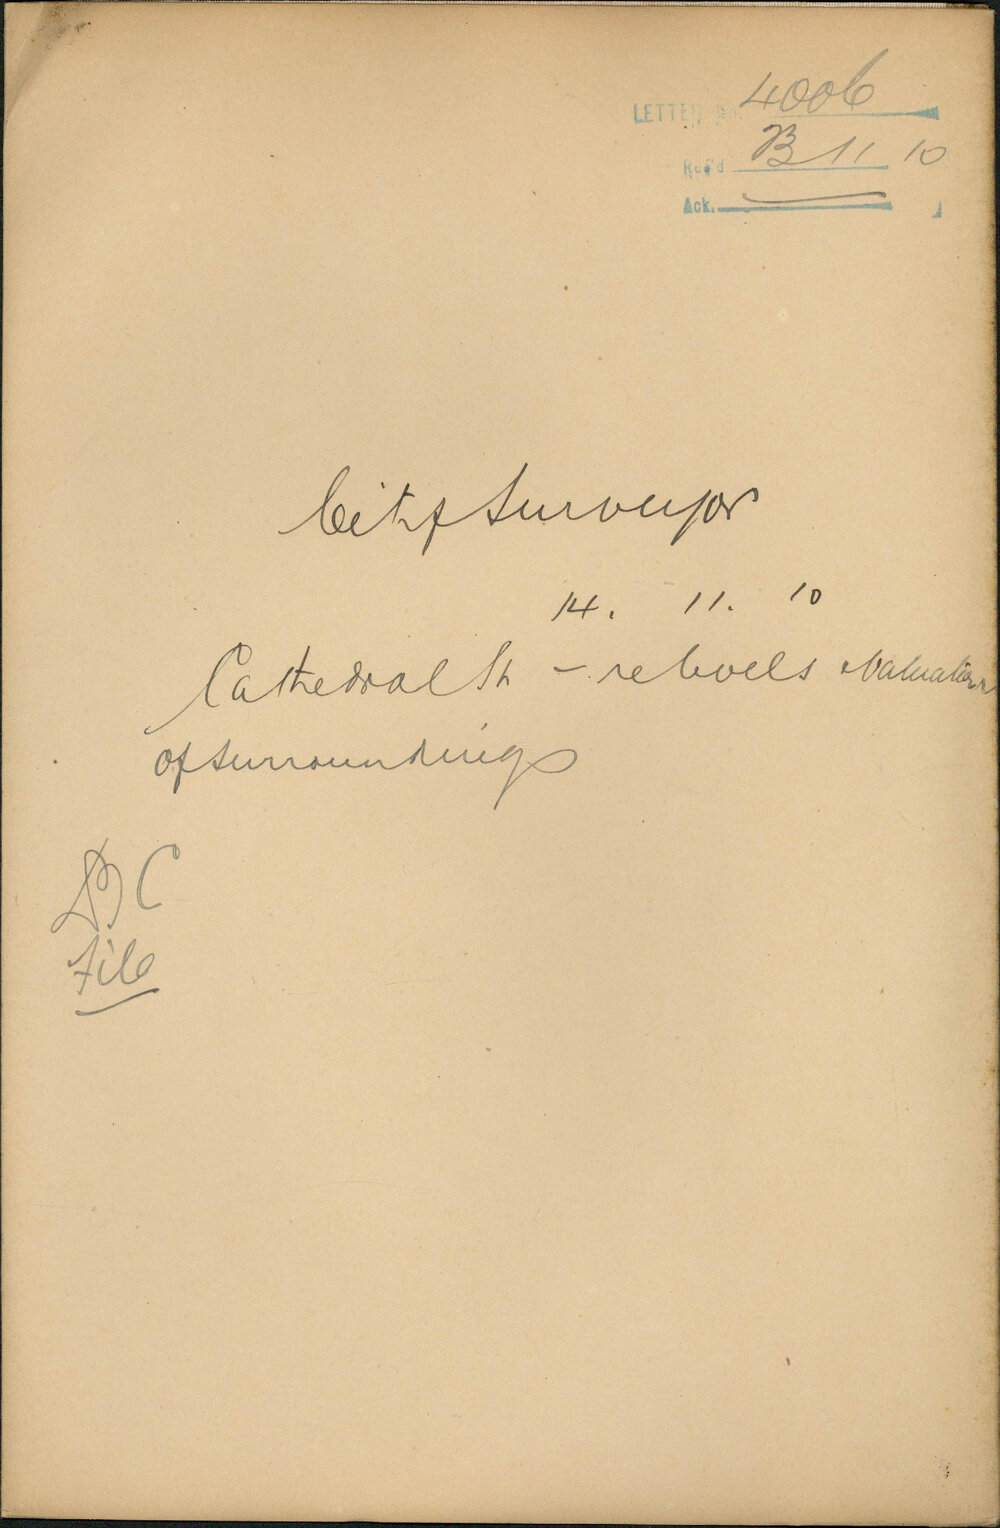 LETTER No. 4006
Rec'd B 11 10
Ack.
City Surveyor
14. 11. 10
Cathedral St – re levels & Valuation
of surroundings
C
File